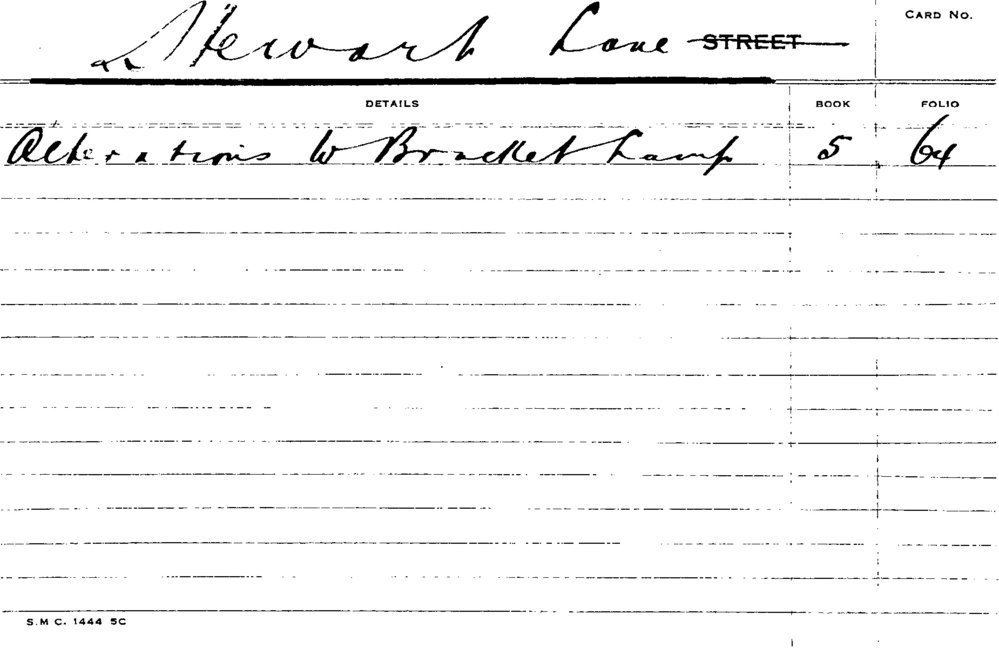 CARD No.
Stewart Lane STREET
DETAILS BOOK FOLIO
Alterations to Bracket Lamp 5 64
S.M C. 1444 5C